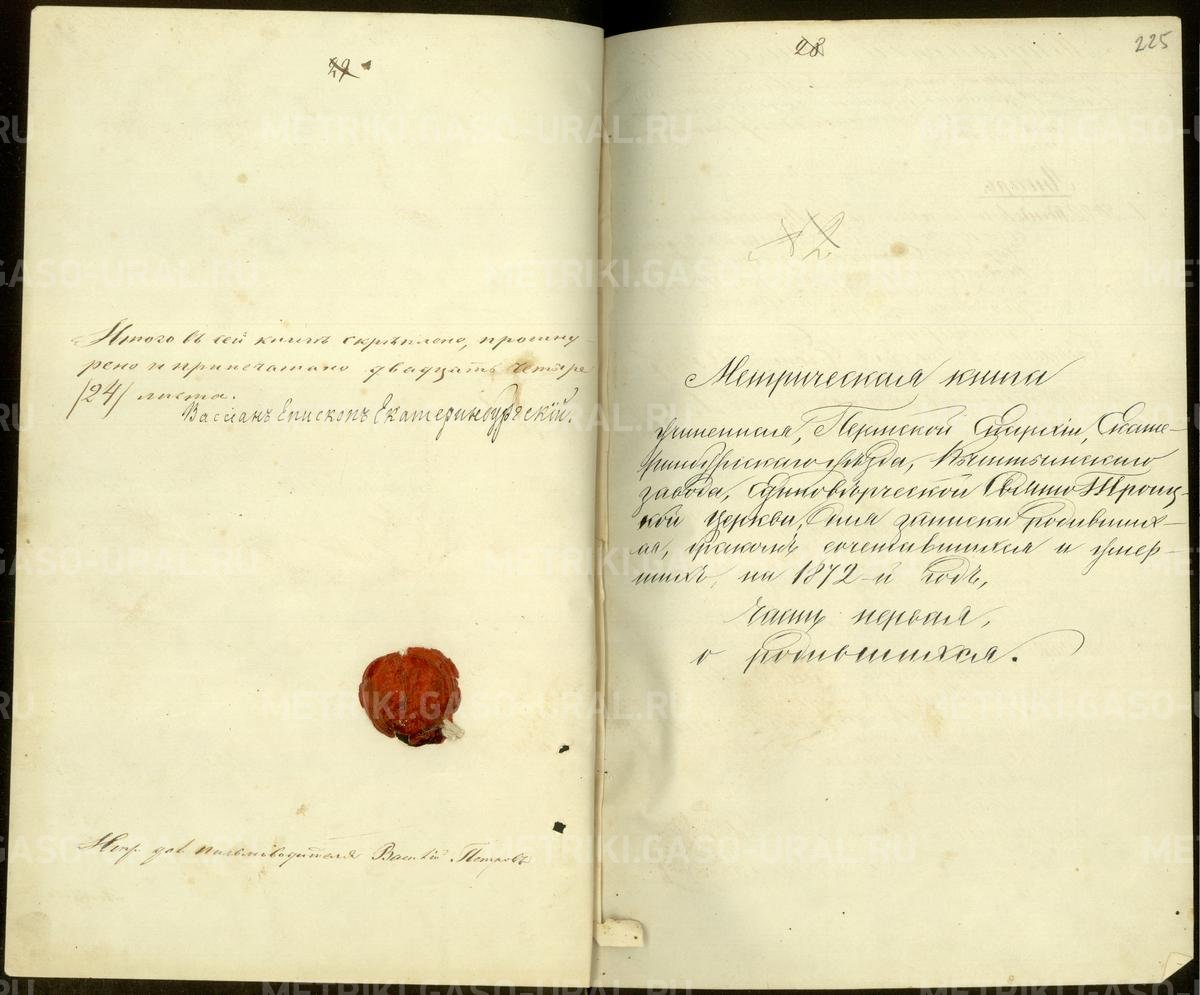 Итого въ сей книгѣ скрѣплено, прошну-
рено и припечатано двадцать четыре
/24/ листа.
Вассіанъ Епископъ Екатеринбургскій.
Испр. дол. письмоводителя Василій Петровъ
28
225
Метрическая книга
учиненная, Пермской Епархіи, Екате-
ринбургскаго уѣзда, Кыштымскаго
завода, Единовѣрческой Свято Троиц-
кой церкви, для записки родивших-
ся, бракомъ сочетавшихся и умер-
шихъ, на 1872-й годъ,
часть первая,
о родившихся.
METRIKI.GASO-URAL.RU